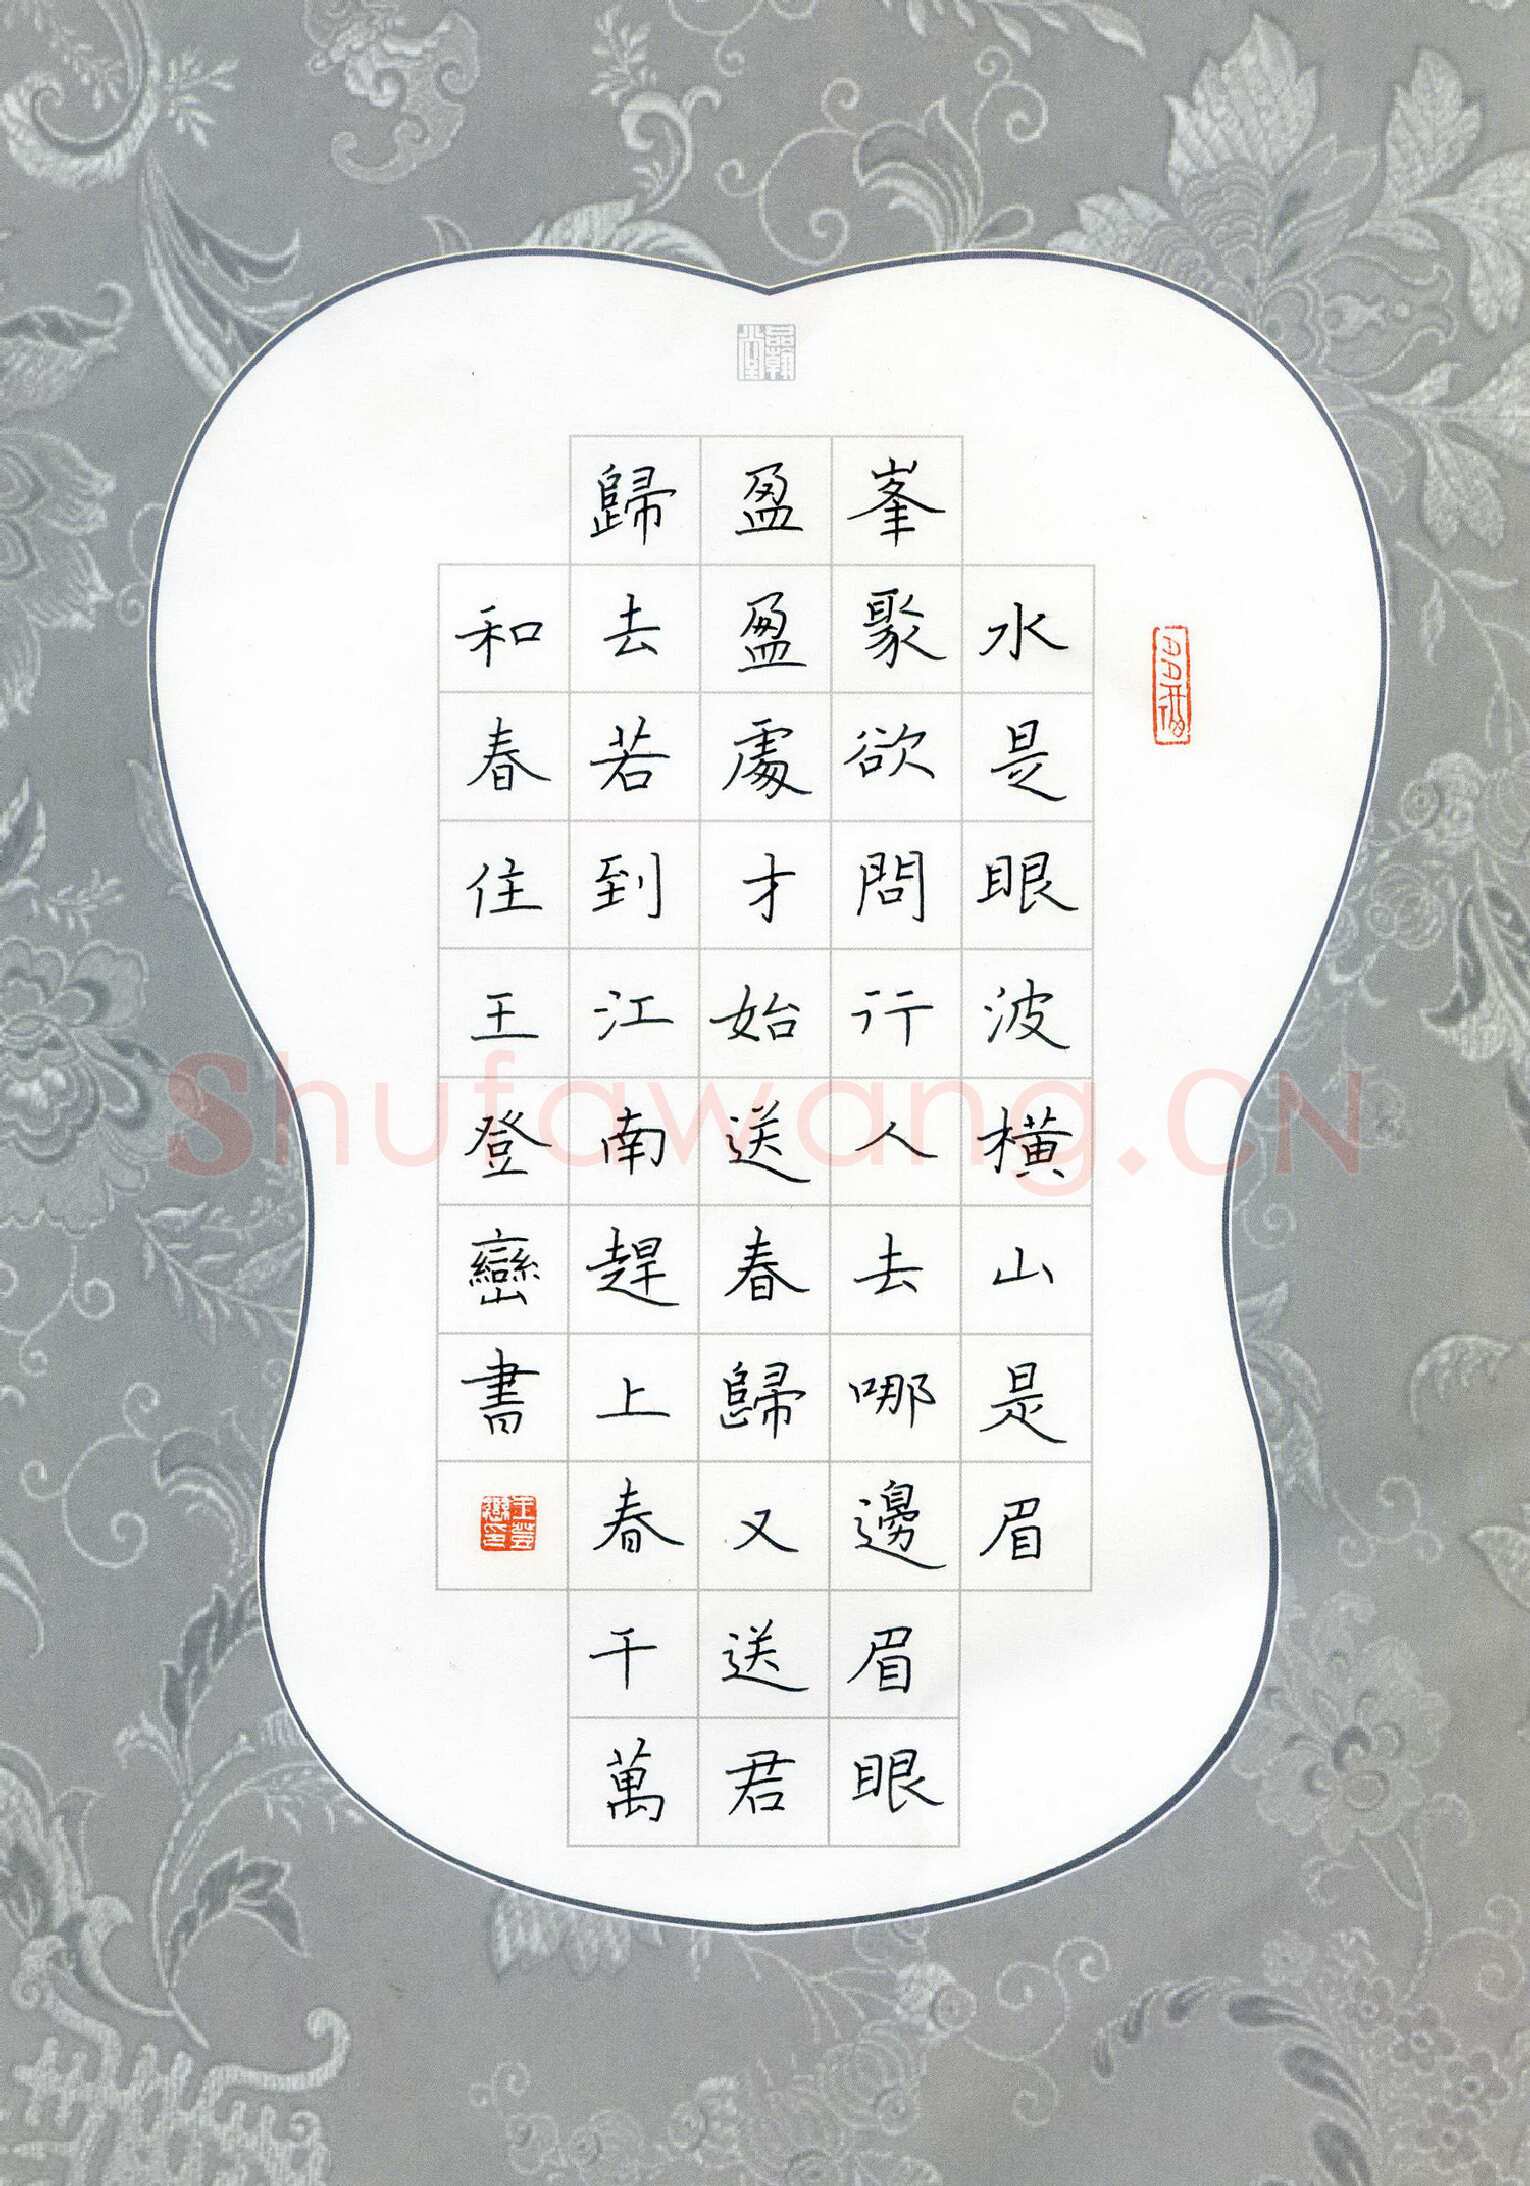 水是眼波横山是眉
峯聚欲問行人去哪邊眉眼
盈盈處才始送春歸又送君
歸去若到江南趕上春千萬
和春住王登巒書
王登巒印
Shufawang.CN